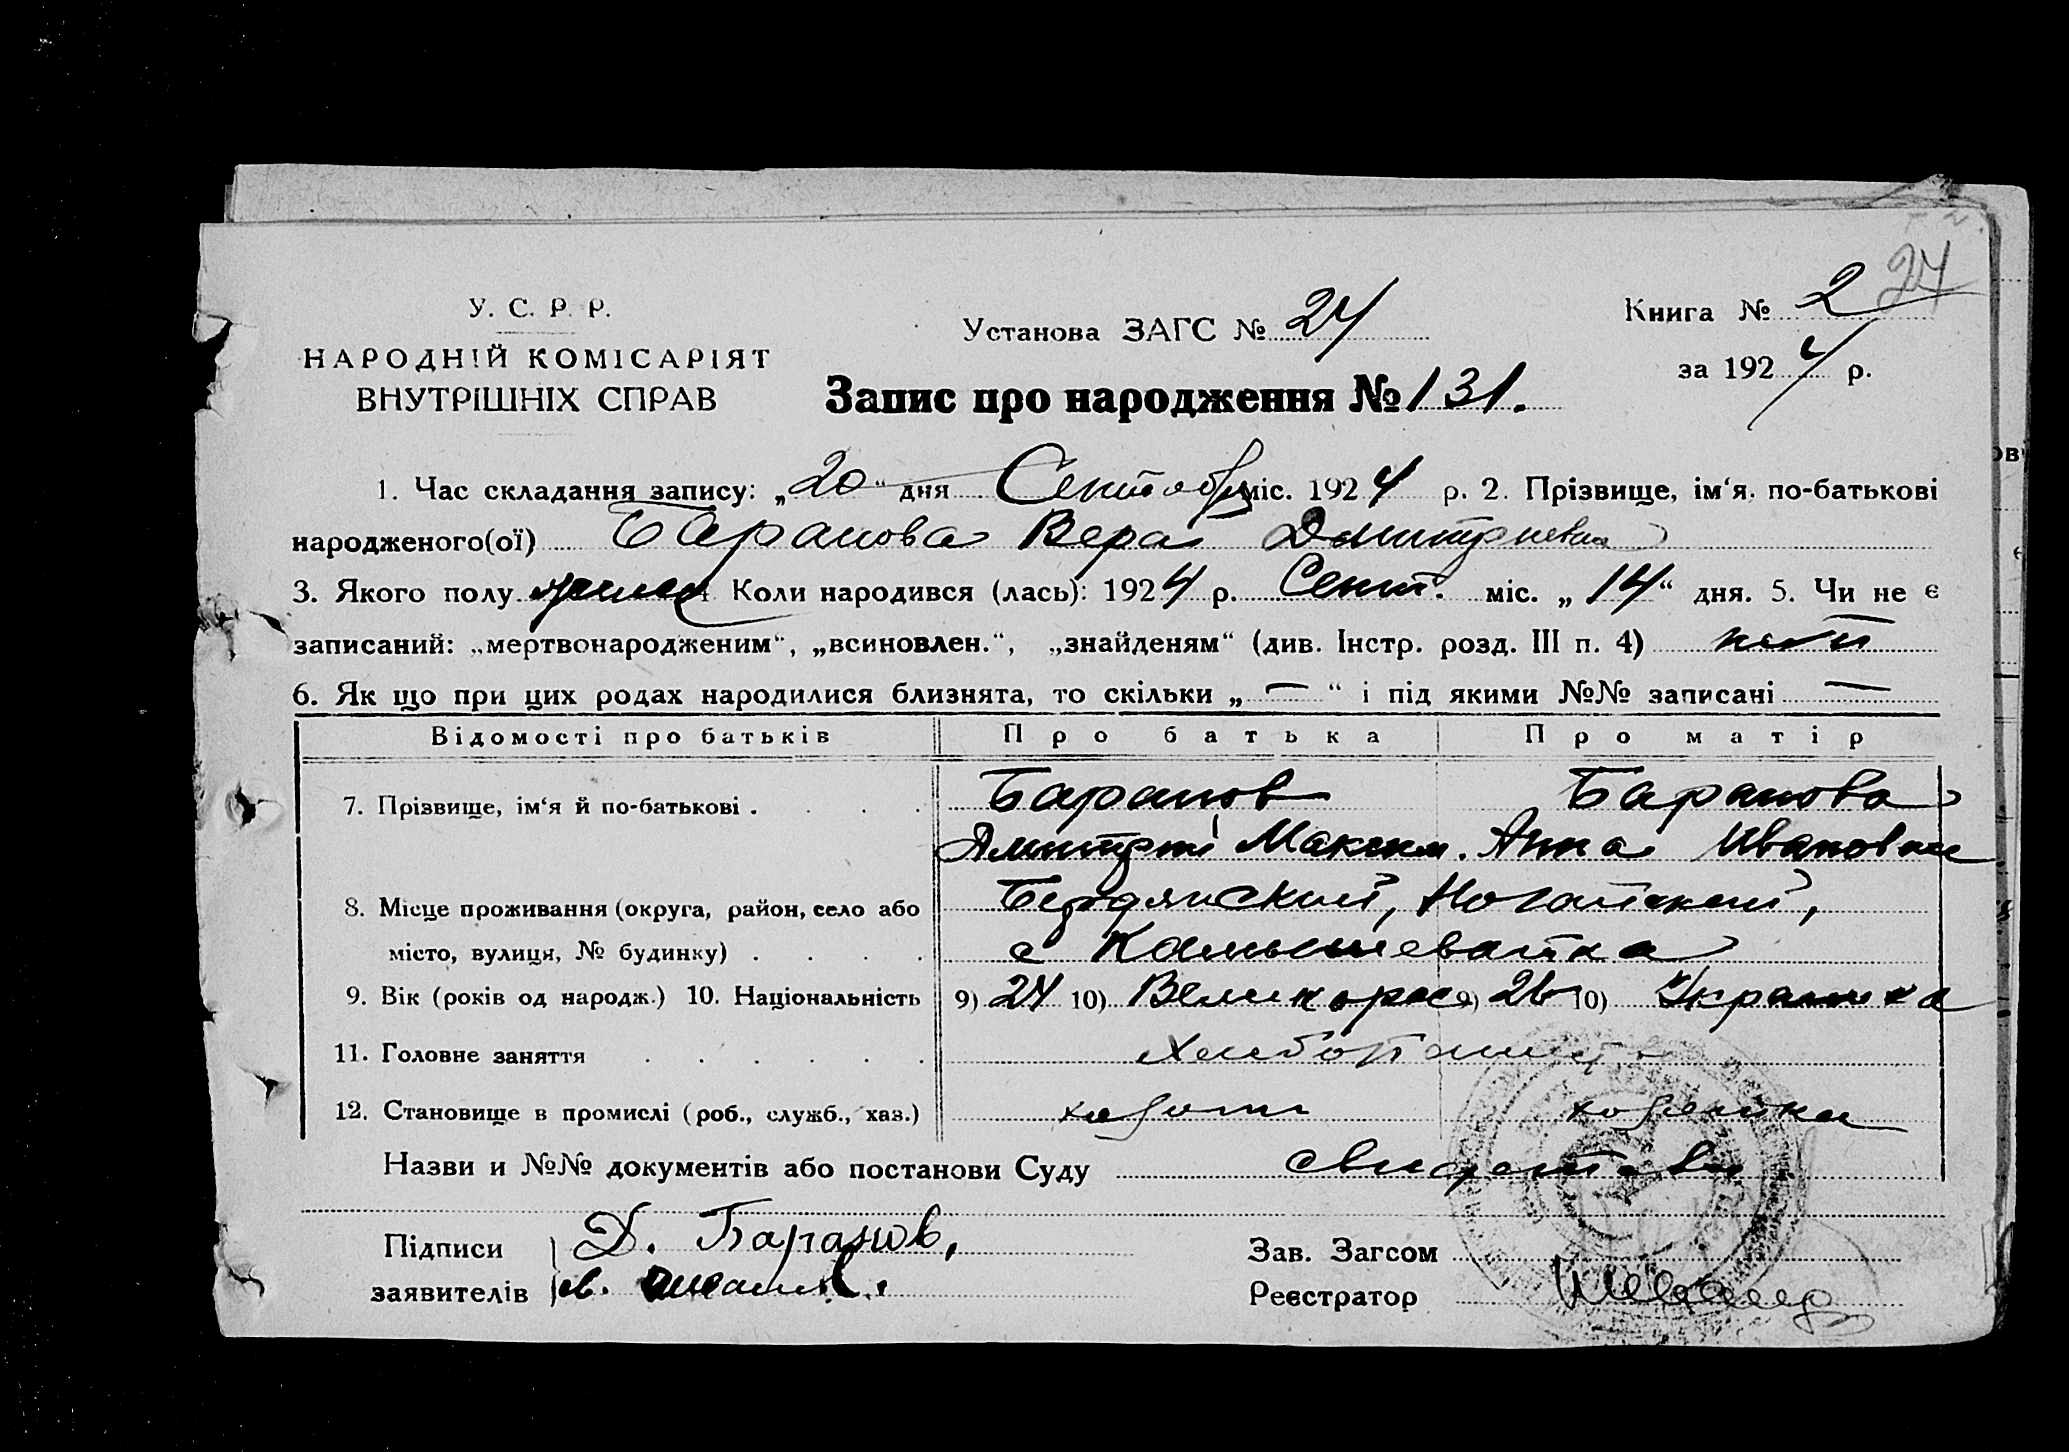 24
У. С. Р. Р.
НАРОДНІЙ КОМІСАРІЯТ
ВНУТРІШНІХ СПРАВ
Установа ЗАГС № 24
Книга № 2
за 1924 р.
Запис про народження № 131.
1. Час складання запису: „20“ дня Сентября міс. 1924 р. 2. Прізвище, ім‘я. по-батькові
народженого(ої) Баранова Вера Дмитриевна
3. Якого полу женск 4. Коли народився (лась): 1924 р. Сент. міс. „14“ дня. 5. Чи не є
записаний: „мертвонародженим“, „всиновлен.“, „знайденям“ (див. Інстр. розд. III п. 4)
6. Як що при цих родах народилися близнята, то скільки „—“ і під якими №№ записані —
Відомості про батьків Про батька Про матір
7. Прізвище, ім‘я й по-батькові . . . . Баранов Баранова
Дмитрий Максим. Анна Ивановна
8. Місце проживання (округа, район, село або Бердянский, Ногайский,
місто, вулиця, № будинку) . . . . с Камышеватка
9. Вік (років од народж.) 10. Національність 9) 24 10) Великорос 9) 26 10) Украинка
11. Головне заняття . . . . . . Хлебопашцы
12. Становище в промислі (роб., служб., хаз.) хозяин хозяйка
Назви и №№ документів або постанови Суду
Підписи Д. Баранов,
заявителів
Зав. Загсом
Реєстратор